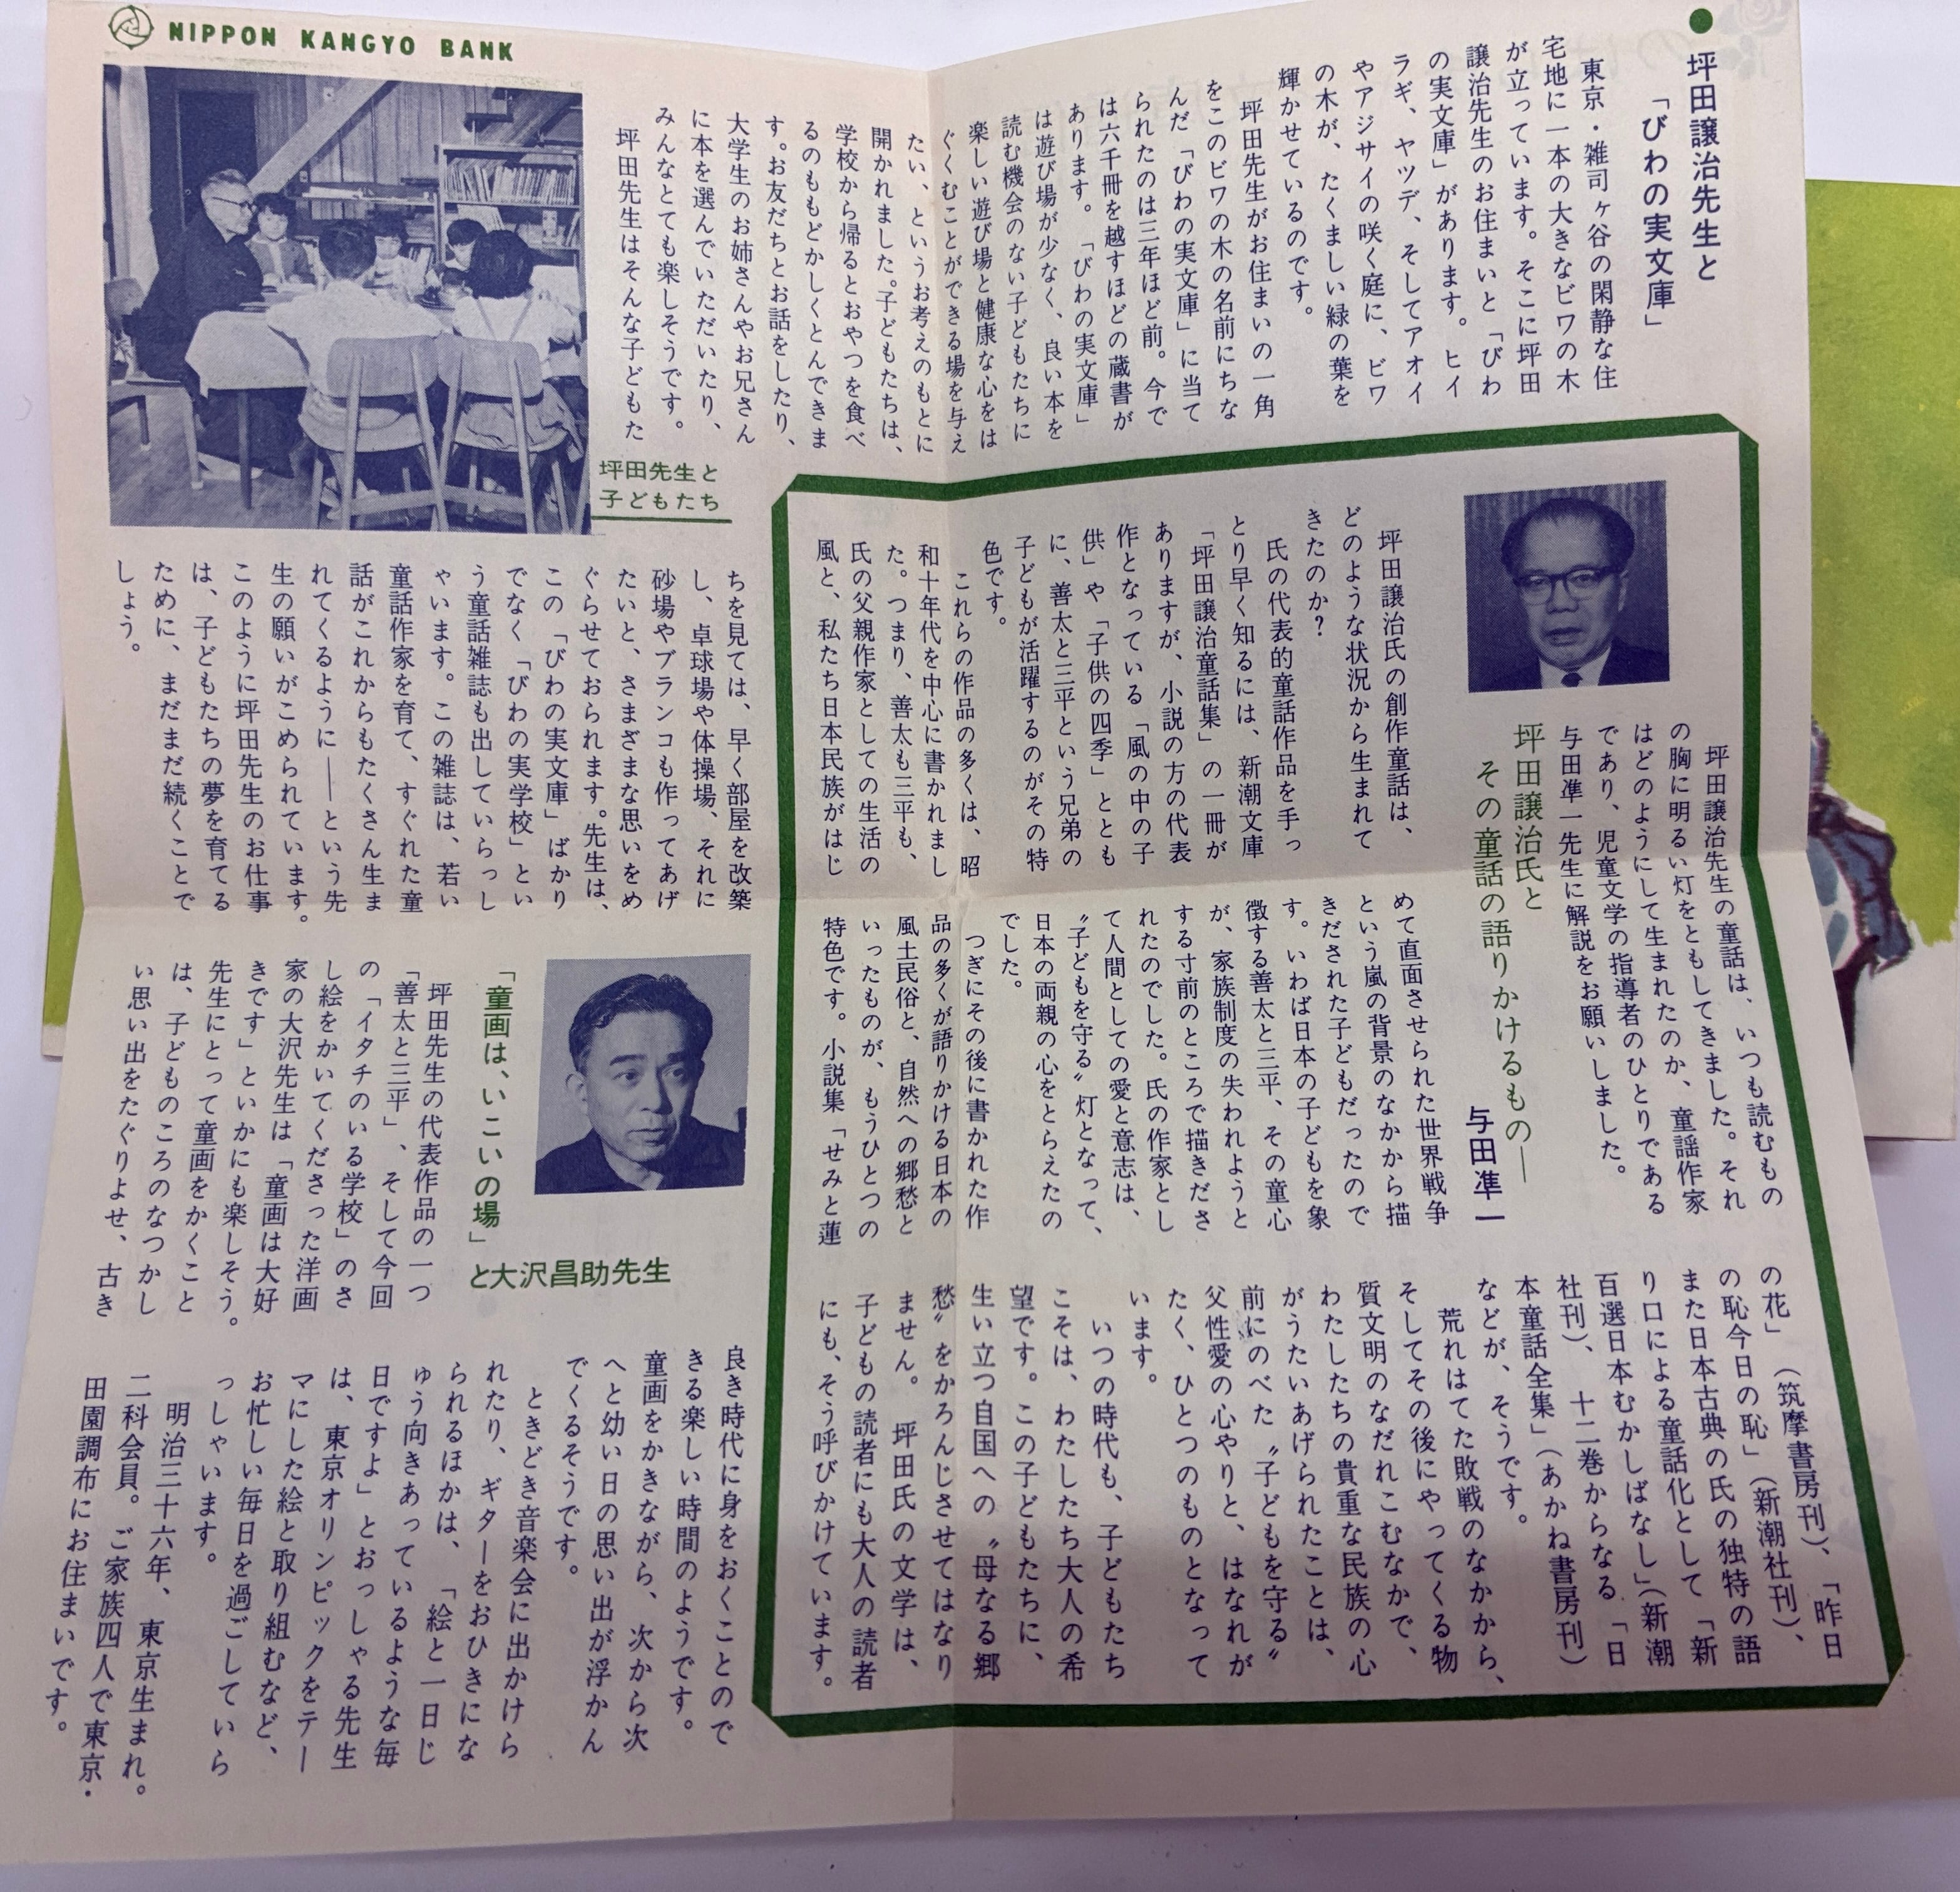 NIPPON KANGYO BANK
●坪田譲治先生と
「びわの実文庫」
東京・雑司ヶ谷の閑静な住
宅地に一本の大きなビワの木
が立っています。そこに坪田
譲治先生のお住まいと「びわ
の実文庫」があります。ヒイ
ラギ、ヤツデ、そしてアオイ
やアジサイの咲く庭に、ビワ
の木が、たくましい緑の葉を
輝かせているのです。
坪田先生がお住まいの一角
をこのビワの木の名前にちな
んだ「びわの実文庫」に当て
られたのは三年ほど前。今で
は六千冊を越すほどの蔵書が
あります。「びわの実文庫」
は遊び場が少なく、良い本を
読む機会のない子どもたちに
楽しい遊び場と健康な心をは
ぐくむことができる場を与え
たい、というお考えのもとに
開かれました。子どもたちは、
学校から帰るとおやつを食べ
るのももどかしくとんできま
す。お友だちとお話をしたり、
大学生のお姉さんやお兄さん
に本を選んでいただいたり、
みんなとても楽しそうです。
坪田先生はそんな子どもた
坪田先生と
子どもたち
ちを見ては、早く部屋を改築
し、卓球場や体操場、それに
砂場やブランコも作ってあげ
たいと、さまざまな思いをめ
ぐらせておられます。先生は、
この「びわの実文庫」ばかり
でなく「びわの実学校」とい
う童話雑誌も出していらっし
ゃいます。この雑誌は、若い
童話作家を育て、すぐれた童
話がこれからもたくさん生ま
れてくるように――という先
生の願いがこめられています。
このように坪田先生のお仕事
は、子どもたちの夢を育てる
ために、まだまだ続くことで
しょう。
坪田譲治先生の童話は、いつも読むもの
の胸に明るい灯をともしてきました。それ
はどのようにして生まれたのか、童謡作家
であり、児童文学の指導者のひとりである
与田準一先生に解説をお願いしました。
坪田譲治氏と
その童話の語りかけるもの――
与田準一
坪田譲治氏の創作童話は、
どのような状況から生まれて
きたのか？
氏の代表的童話作品を手っ
とり早く知るには、新潮文庫
「坪田譲治童話集」の一冊が
ありますが、小説の方の代表
作となっている「風の中の子
供」や「子供の四季」ととも
に、善太と三平という兄弟の
子どもが活躍するのがその特
色です。
これらの作品の多くは、昭
和十年代を中心に書かれまし
た。つまり、善太も三平も、
氏の父親作家としての生活の
風と、私たち日本民族がはじ
めて直面させられた世界戦争
という嵐の背景のなかから描
きだされた子どもだったので
す。いわば日本の子どもを象
徴する善太と三平、その童心
が、家族制度の失われようと
する寸前のところで描きださ
れたのでした。氏の作家とし
て人間としての愛と意志は、
〝子どもを守る〟灯となって、
日本の両親の心をとらえたの
でした。
つぎにその後に書かれた作
品の多くが語りかける日本の
風土民俗と、自然への郷愁と
いったものが、もうひとつの
特色です。小説集「せみと蓮
の花」（筑摩書房刊）、「昨日
の恥今日の恥」（新潮社刊）、
また日本古典の氏の独特の語
り口による童話化として「新
百選日本むかしばなし」（新潮
社刊）、十二巻からなる「日
本童話全集」（あかね書房刊）
などが、そうです。
荒れはてた敗戦のなかから、
そしてその後にやってくる物
質文明のなだれこむなかで、
わたしたちの貴重な民族の心
がうたいあげられたことは、
前にのべた〝子どもを守る〟
父性愛の心やりと、はなれが
たく、ひとつのものとなって
います。
いつの時代も、子どもたち
こそは、わたしたち大人の希
望です。この子どもたちに、
生い立つ自国への〝母なる郷
愁〟をかろんじさせてはなり
ません。　坪田氏の文学は、
子どもの読者にも大人の読者
にも、そう呼びかけています。
「童画は、いこいの場」
と大沢昌助先生
坪田先生の代表作品の一つ
「善太と三平」、そして今回
の「イタチのいる学校」のさ
し絵をかいてくださった洋画
家の大沢先生は「童画は大好
きです」といかにも楽しそう。
先生にとって童画をかくこと
は、子どものころのなつかし
い思い出をたぐりよせ、古き
良き時代に身をおくことので
きる楽しい時間のようです。
童画をかきながら、次から次
へと幼い日の思い出が浮かん
でくるそうです。
ときどき音楽会に出かけら
れたり、ギターをおひきにな
られるほかは、「絵と一日じ
ゅう向きあっているような毎
日ですよ」とおっしゃる先生
は、東京オリンピックをテー
マにした絵と取り組むなど、
お忙しい毎日を過ごしていら
っしゃいます。
明治三十六年、東京生まれ。
二科会員。ご家族四人で東京・
田園調布にお住まいです。